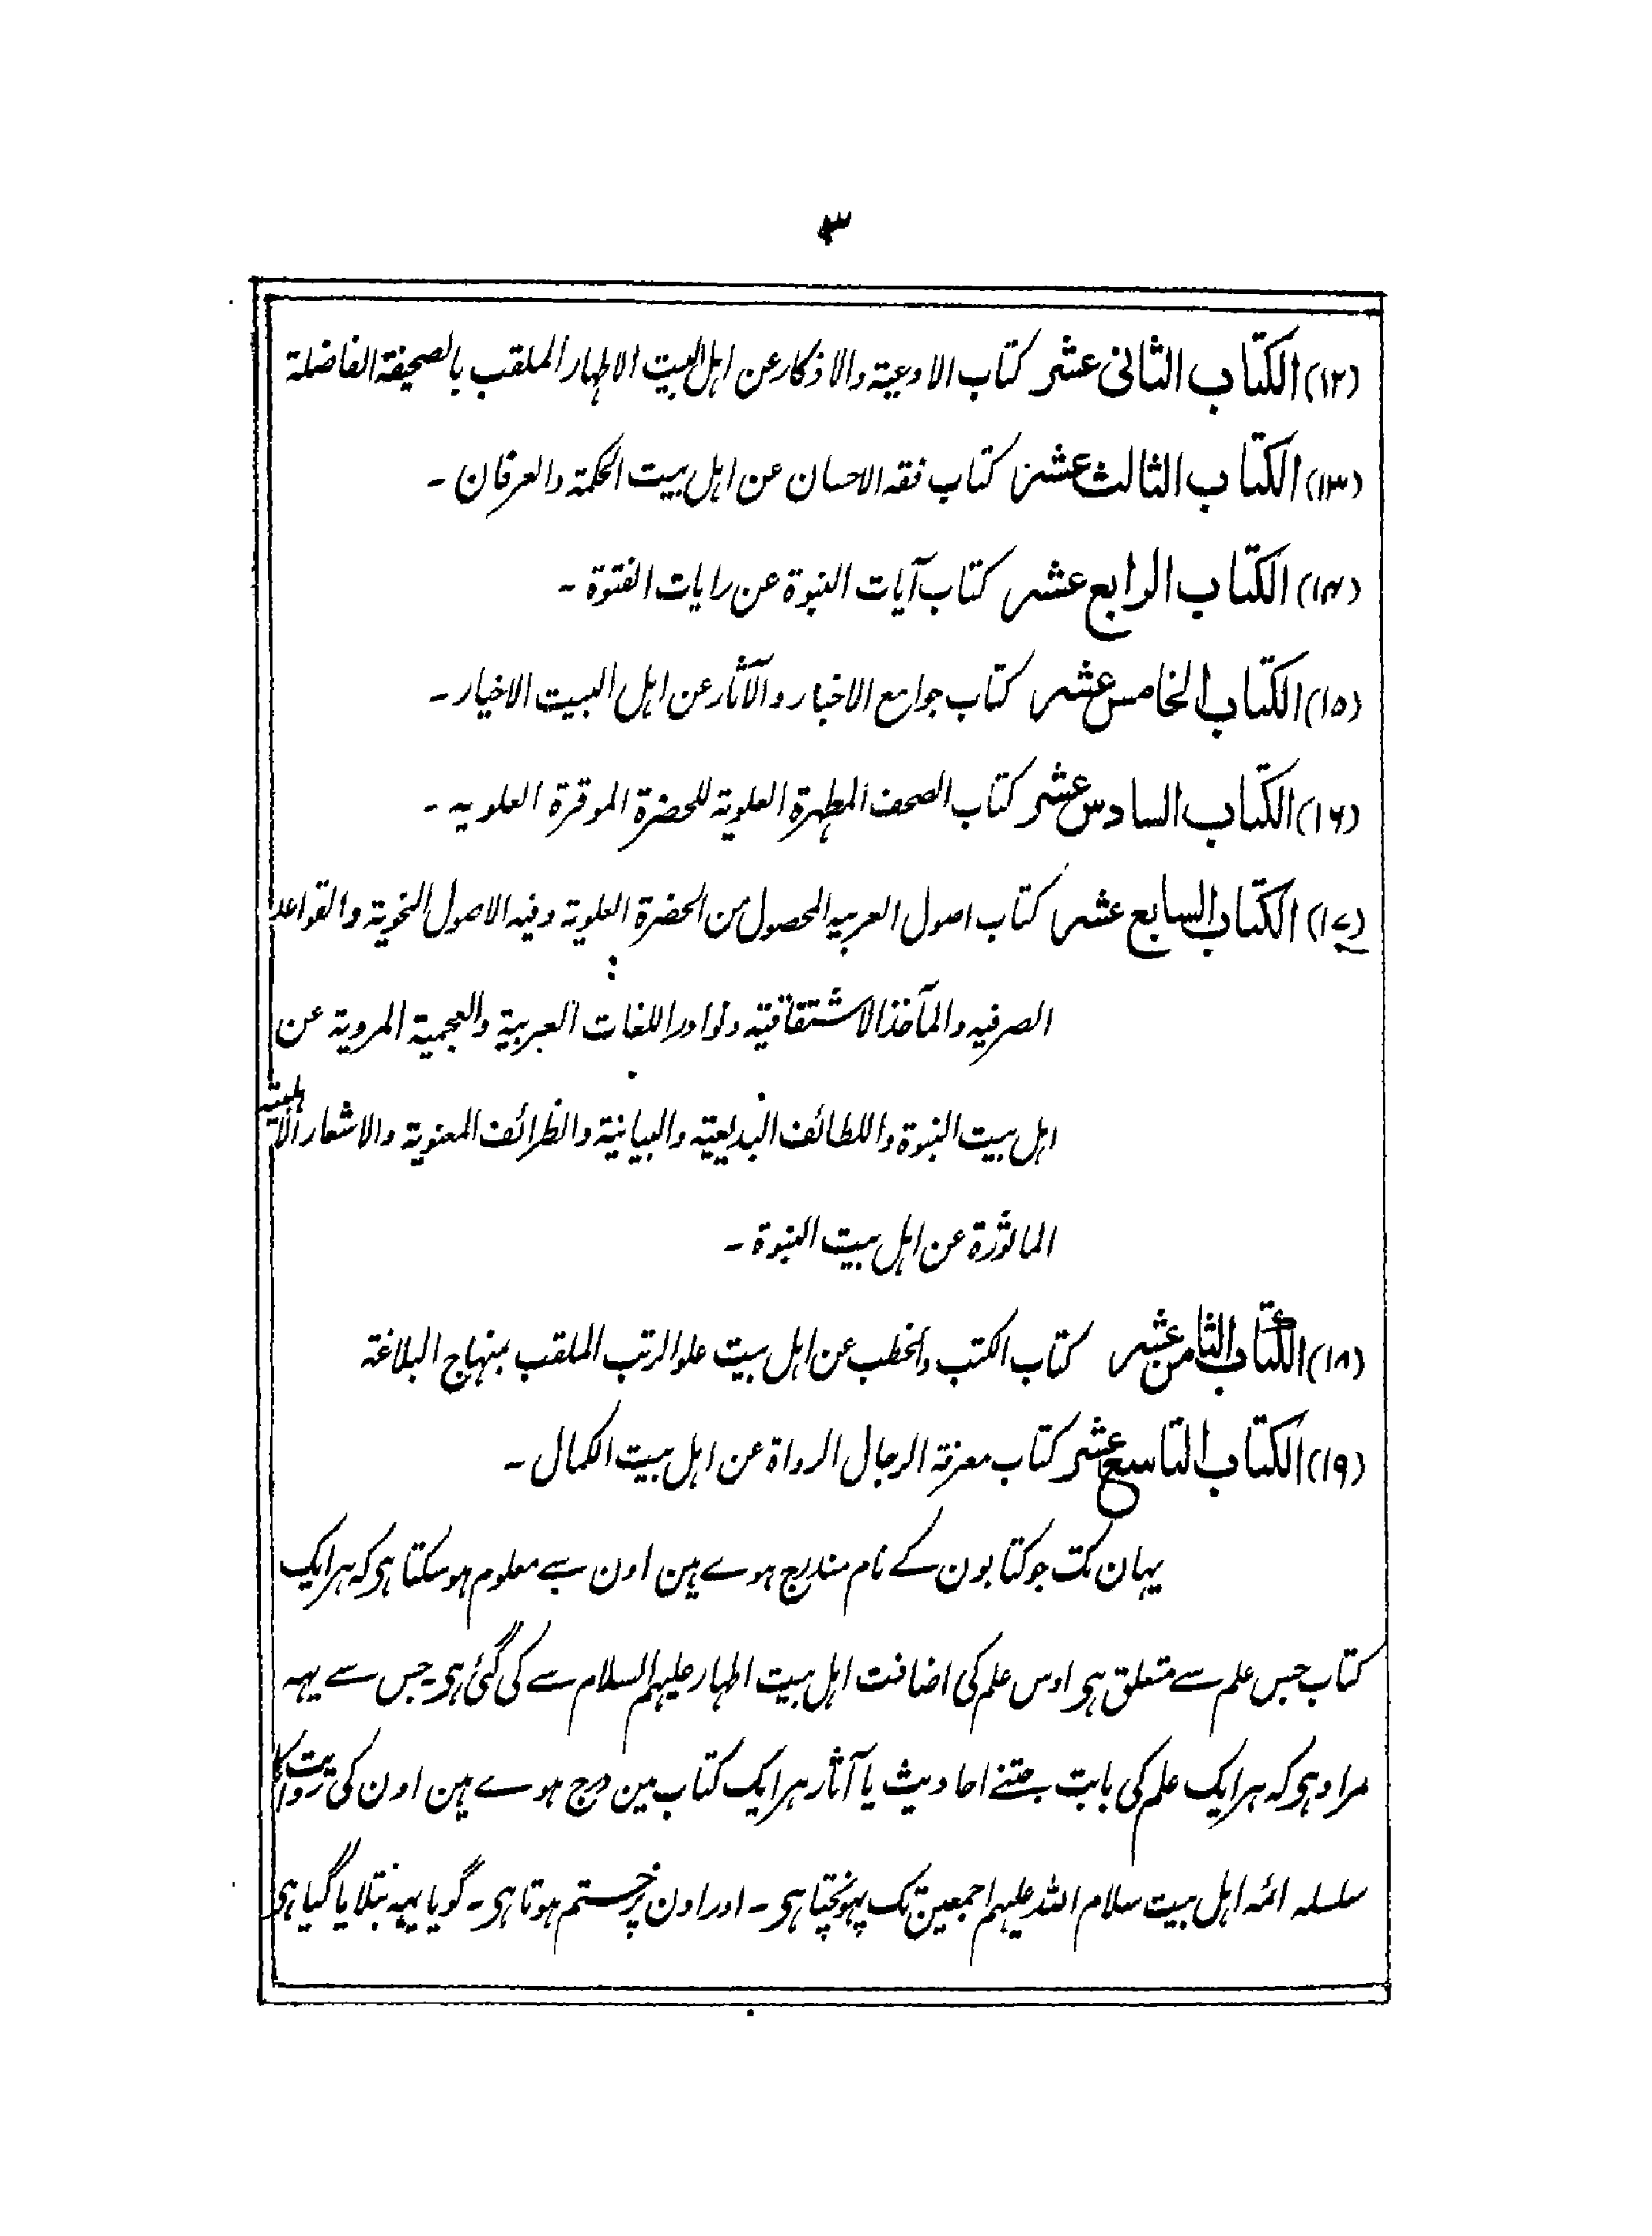 ۳
(۱۲) الکتاب الثانی عشر کتاب الادعیۃ والاذکار عن اہل البیت الاطہار الملقب بالصحیفۃ الفاضلۃ
(۱۳) الکتاب الثالث عشر کتاب فقہ الاحسان عن اہل بیت الحکمۃ والعرفان ۔
(۱۴) الکتاب الرابع عشر کتاب آیات النبوۃ عن رایات الفتوۃ ۔
(۱۵) الکتاب الخامس عشر کتاب جوامع الاخبار والآثار عن اہل البیت الاخیار ۔
(۱۶) الکتاب السادس عشر کتاب الصحف المطہرۃ العلویۃ للحضرۃ الموقرۃ العلویہ ۔
(۱۷) الکتاب السابع عشر کتاب اصول العربیہ المحصول من الحضرۃ العلویۃ وفیہ الاصول النحویۃ والقواعد
الصرفیہ والمآخذ الاشتقاقیۃ ونوادر اللغات العربیۃ والعجمیۃ المرویۃ عن
اہل بیت النبوۃ واللطائف البدیعیۃ والبیانیۃ والظرائف المعنویۃ والاشعار
الماثورۃ عن اہل بیت النبوۃ ۔
(۱۸) الکتاب الثامن عشر کتاب الکتب والخطب عن اہل بیت علو الرتب الملقب بمنہاج البلاغۃ
(۱۹) الکتاب التاسع عشر کتاب معرفۃ الرجال الرواۃ عن اہل بیت الکمال ۔
یہان تک جو کتابون کے نام مندرج ہوے ہین اون سے معلوم ہوسکتا ہی کہ ہر ایک
کتاب جس علم سے متعلق ہی اوس علم کی اضافت اہل بیت اطہار علیہم السلام سے کی گئی ہی۔ جس سے یہہ
مراد ہی کہ ہر ایک علم کی بابت جتنے احادیث یا آثار ہر ایک کتاب مین درج ہوے ہین اون کی روایت کا
سلسلہ ائمہ اہل بیت سلام اللہ علیہم اجمعین تک پہونچتا ہی ۔ اور اون پر ختم ہوتا ہی ۔ گویا یہہ بتلایا گیا ہی